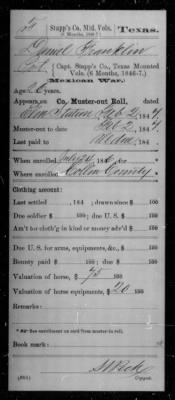 F | Stapp's Co., Mtd. Vols. | Texas.
(6 Months, 1846-7.)
Franklin
(Capt. Stapp's Co., Texas Mounted
Vols. (6 Months, 1846-7.)
Mexican War.)
Age years.
Appears on
Co. Muster-out Roll, dated
Station Feb 2, 1847.
Muster-out to date Feb 2, 1847.
Last paid to , 184
When enrolled July 24, 1846.
Where enrolled Collin County
Clothing account:
Last settled , 184 ; drawn since $ 100
Due soldier $ 100; due U. S. $ 100
Am't for cloth'g in kind or money adv'd $ 100
Due U. S. for arms, equipments, &c., $ 100
Bounty paid $ 100; due $ 100
Valuation of horse, $ 75 100
Valuation of horse equipments, $ 20 100
Remarks:
* See enrollment on card from muster-in roll.
Book mark:
(861) Copyist.